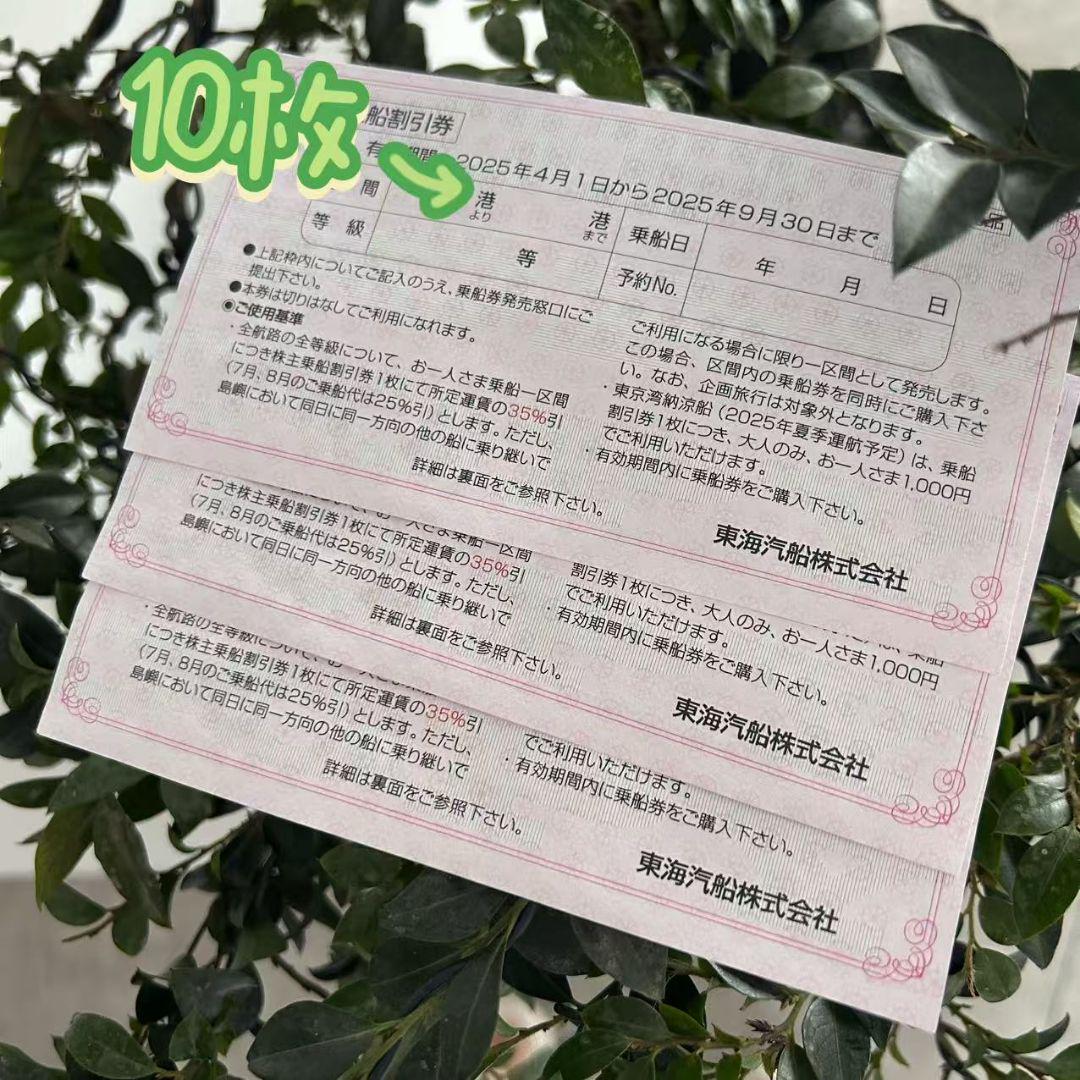 10枚
船割引券
2025年4月1日から2025年9月30日まで
間 港より 港まで 乗船日 年 月 日
等 級 等 予約No.
●上記枠内についてご記入のうえ、乗船券発売窓口にご
提出下さい。
●本券は切りはなしてご利用になれます。
◉ご使用基準
・全航路の全等級について、お一人さま乗船一区間
につき株主乗船割引券1枚にて所定運賃の35%引
(7月、8月のご乗船代は25%引)とします。ただし、
島嶼において同日に同一方向の他の船に乗り継いで
ご利用になる場合に限り一区間として発売します。
この場合、区間内の乗船券を同時にご購入下さ
い。なお、企画旅行は対象外となります。
・東京湾納涼船(2025年夏季運航予定)は、乗船
割引券1枚につき、大人のみ、お一人さま1,000円
でご利用いただけます。
・有効期間内に乗船券をご購入下さい。
詳細は裏面をご参照下さい。
東海汽船株式会社
につき株主乗船割引券1枚にて所定運賃の35%引
(7月、8月のご乗船代は25%引)とします。ただし、
島嶼において同日に同一方向の他の船に乗り継いで
割引券1枚につき、大人のみ、お一人さま1,000円
でご利用いただけます。
・有効期間内に乗船券をご購入下さい。
詳細は裏面をご参照下さい。
東海汽船株式会社
・全航路の全等級について、
につき株主乗船割引券1枚にて所定運賃の35%引
(7月、8月のご乗船代は25%引)とします。ただし、
島嶼において同日に同一方向の他の船に乗り継いで
でご利用いただけます。
・有効期間内に乗船券をご購入下さい。
詳細は裏面をご参照下さい。
東海汽船株式会社